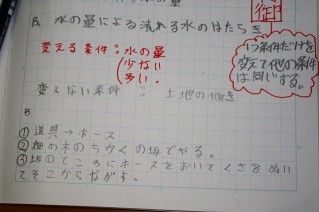 B 水の量による流れる水のはたらき
変える条件：水の量
少ない
多い。
1つ条件だけを
変えて他の条件
は同じする。
変えない条件： 土地の傾き
B
①道具→ホース
②梅の木のちかくの坂でやる。
③坂のところにホースをおいてくさをぬい
てそこからながす。